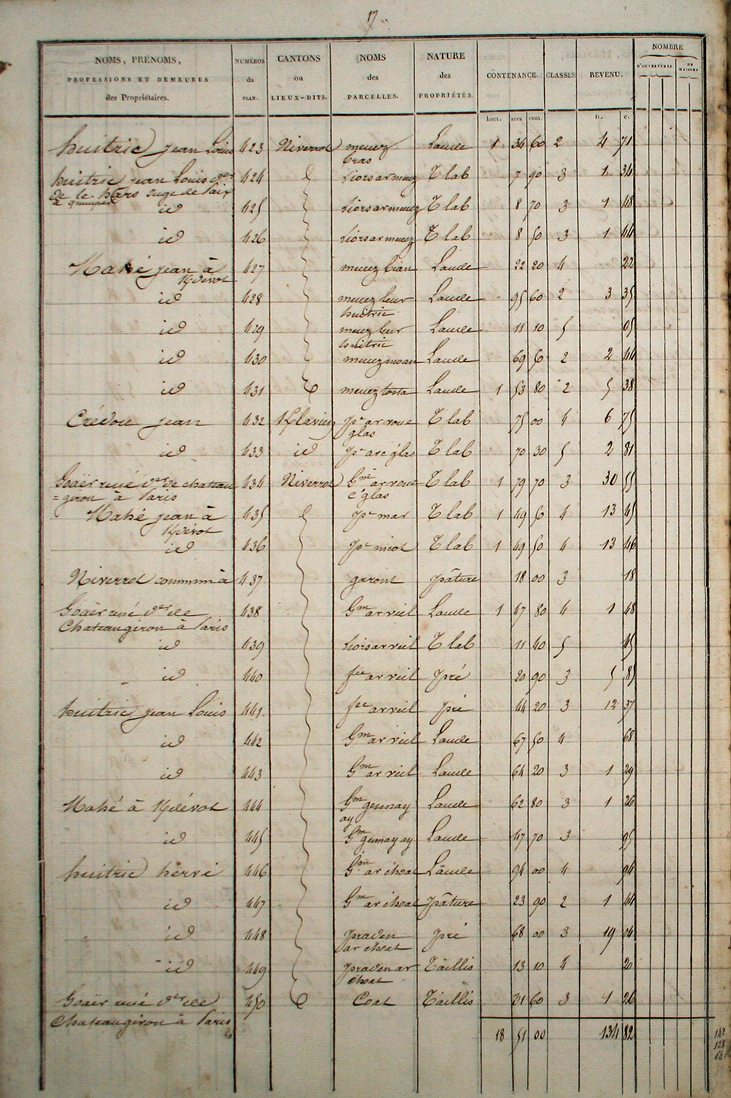 17
NOMS, PRÉNOMS, PROFESSIONS ET DEMEURES des Propriétaires. NUMÉROS du PLAN. CANTONS ou LIEUX-DITS. NOMS des PARCELLES. NATURE des PROPRIÉTÉS. CONTENANCE. CLASSES. REVENU. NOMBRE D'OUVERTURES DE MAISONS
hect. ares cent. fr. c.
huitric jean Louis 423 Niverrot menez bras Lande 1 34 60 2 4 71
huitric jean Louis 424 liors ar menez T lab 7 90 3 1 34
de le hars juge de Paix à quimper
id 425 liors ar menez T lab 8 70 3 1 48
id 426 liors ar menez T lab 8 50 3 1 44
Mahé jean à Kdévot 427 menez bian Lande 22 20 4 22
id 428 menez leur huitric Lande 95 60 2 3 35
id 429 menez leur huitric Lande 11 10 5 05
id 430 menez moan Lande 69 50 2 2 44
id 431 menez tosta Lande 1 53 80 2 5 38
Crédou jean 432 ar roue glas T lab 75 00 4 6 75
id 433 id T lab 70 30 5 2 81
Goaër rené de chateau=giron à Paris 434 Niverrot Gm ar roue glas T lab 1 79 70 3 30 55
Mahé jean à Kdévot 435 mar T lab 1 49 50 4 13 45
id 436 T lab 1 49 50 4 13 46
Niverrot commun à 437 pâture 18 00 3 18
Goaër rené de Chateaugiron à Paris 438 Gm ar veil Lande 1 47 80 4 1 48
id 439 liors ar veil T lab 11 40 5 45
id 440 ar veil pré 20 90 3 5 85
huitric jean Louis 441 ar veil pré 44 20 3 12 37
id 442 Gm ar veil Lande 67 50 4 68
id 443 Gm ar veil Lande 64 20 3 1 29
Mahé à Kdévot 444 Gm gennay ay Lande 62 80 3 1 26
id 445 Gm gennay ay Lande 47 70 3 95
huitric hervé 446 Gm ar choat Lande 94 00 4 94
id 447 Gm ar choat pâture 23 90 2 1 44
id 448 praden ar choat pré 68 00 3 19 04
id 449 praden ar choat Taillis 13 10 4 20
Goaër rené de Chateaugiron à Paris 450 Coat Taillis 31 60 3 1 26
18 51 00 134 82